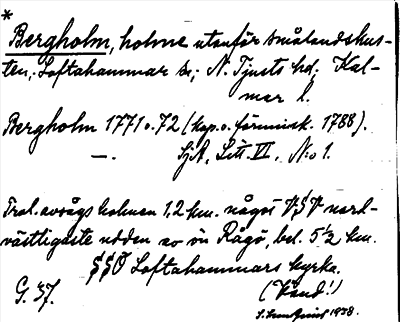 *
Bergholm, holme utanför smålandskus-
ten; Loftahammar sn; N. Tjusts hd; Kal-
mar l.
Bergholm 1771 o. 72 (kop. o. förminsk. 1788).
—. SjA, Litt. VI, No 1.
Trol. avsågs holmen 1,2 km. något V§V nord-
västligaste udden av ön Rågö, bel. 5½ km.
§§Ö Loftahammars kyrka.
G. 37. (Vänd!)
1938.